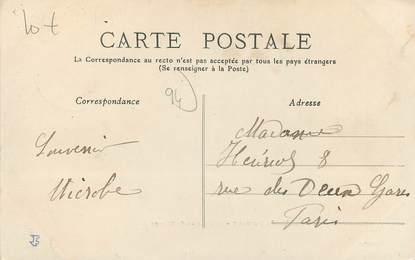 10 t
CARTE POSTALE
La Correspondance au recto n'est pas acceptée par tous les pays étrangers
(Se renseigner à la Poste)
Correspondance
94
Adresse
Souvenir
Microbe
Madame
8
rue des Deux Gares
Paris